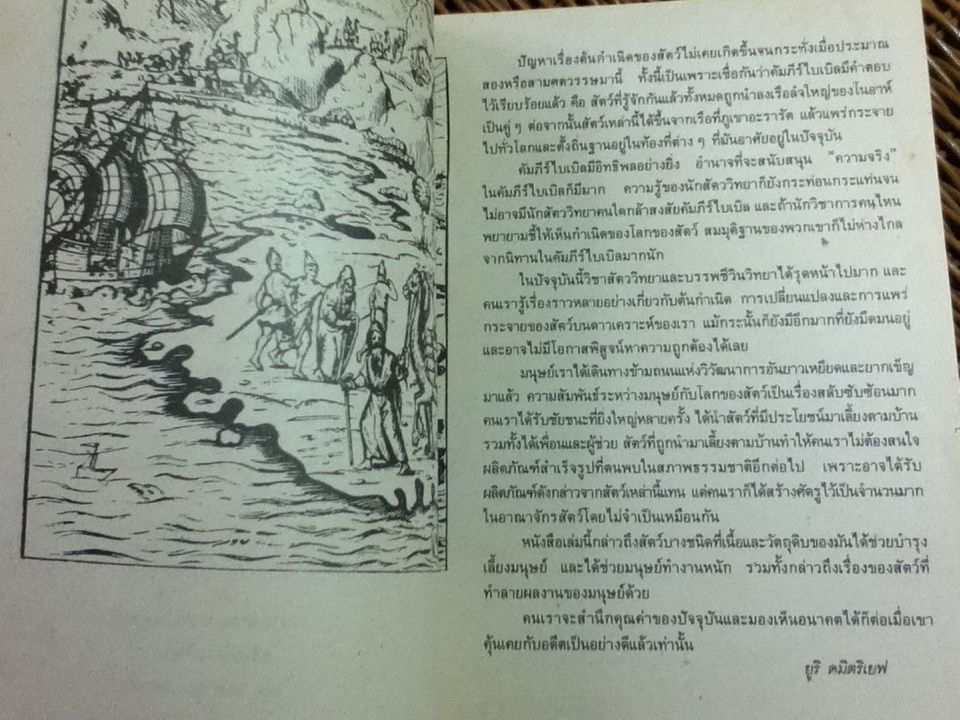 ปัญหาเรื่องต้นกำเนิดของสัตว์ไม่เคยเกิดขึ้นจนกระทั่งเมื่อประมาณ
สองหรือสามศตวรรษมานี้ ทั้งนี้เป็นเพราะเชื่อกันว่าคัมภีร์ไบเบิลมีคำตอบ
ไว้เรียบร้อยแล้ว คือ สัตว์ที่รู้จักกันแล้วทั้งหมดถูกนำลงเรือลำใหญ่ของโนอาห์
เป็นคู่ ๆ ต่อจากนั้นสัตว์เหล่านี้ได้ขึ้นจากเรือที่ภูเขาอะรารัต แล้วแพร่กระจาย
ไปทั่วโลกและตั้งถิ่นฐานอยู่ในท้องที่ต่าง ๆ ที่มันอาศัยอยู่ในปัจจุบัน
คัมภีร์ไบเบิลมีอิทธิพลอย่างยิ่ง อำนาจที่จะสนับสนุน "ความจริง"
ในคัมภีร์ไบเบิลก็มีมาก ความรู้ของนักสัตววิทยาก็ยังกระท่อนกระแท่นจน
ไม่อาจมีนักสัตววิทยาคนใดกล้าสงสัยคัมภีร์ไบเบิล และถ้านักวิชาการคนไหน
พยายามชี้ให้เห็นกำเนิดของโลกของสัตว์ สมมุติฐานของพวกเขาก็ไม่ห่างไกล
จากนิทานในคัมภีร์ไบเบิลมากนัก
ในปัจจุบันนี้วิชาสัตววิทยาและบรรพชีวินวิทยาได้รุดหน้าไปมาก และ
คนเรารู้เรื่องราวหลายอย่างเกี่ยวกับต้นกำเนิด การเปลี่ยนแปลงและการแพร่
กระจายของสัตว์บนดาวเคราะห์ของเรา แม้กระนั้นก็ยังมีอีกมากที่ยังมืดมนอยู่
และอาจไม่มีโอกาสพิสูจน์หาความถูกต้องได้เลย
มนุษย์เราได้เดินทางข้ามถนนแห่งวิวัฒนาการอันยาวเหยียดและยากเข็ญ
มาแล้ว ความสัมพันธ์ระหว่างมนุษย์กับโลกของสัตว์เป็นเรื่องสลับซับซ้อนมาก
คนเราได้รับชัยชนะที่ยิ่งใหญ่หลายครั้ง ได้นำสัตว์ที่มีประโยชน์มาเลี้ยงตามบ้าน
รวมทั้งได้เพื่อนและผู้ช่วย สัตว์ที่ถูกนำมาเลี้ยงตามบ้านทำให้คนเราไม่ต้องสนใจ
ผลิตภัณฑ์สำเร็จรูปที่ตนพบในสภาพธรรมชาติอีกต่อไป เพราะอาจได้รับ
ผลิตภัณฑ์ดังกล่าวจากสัตว์เหล่านี้แทน แต่คนเราก็ได้สร้างศัตรูไว้เป็นจำนวนมาก
ในอาณาจักรสัตว์โดยไม่จำเป็นเหมือนกัน
หนังสือเล่มนี้กล่าวถึงสัตว์บางชนิดที่เนื้อและวัตถุดิบของมันได้ช่วยบำรุง
เลี้ยงมนุษย์ และได้ช่วยมนุษย์ทำงานหนัก รวมทั้งกล่าวถึงเรื่องของสัตว์ที่
ทำลายผลงานของมนุษย์ด้วย
คนเราจะสำนึกคุณค่าของปัจจุบันและมองเห็นอนาคตได้ก็ต่อเมื่อเขา
คุ้นเคยกับอดีตเป็นอย่างดีแล้วเท่านั้น
ยูริ ดมิตริเยฟ